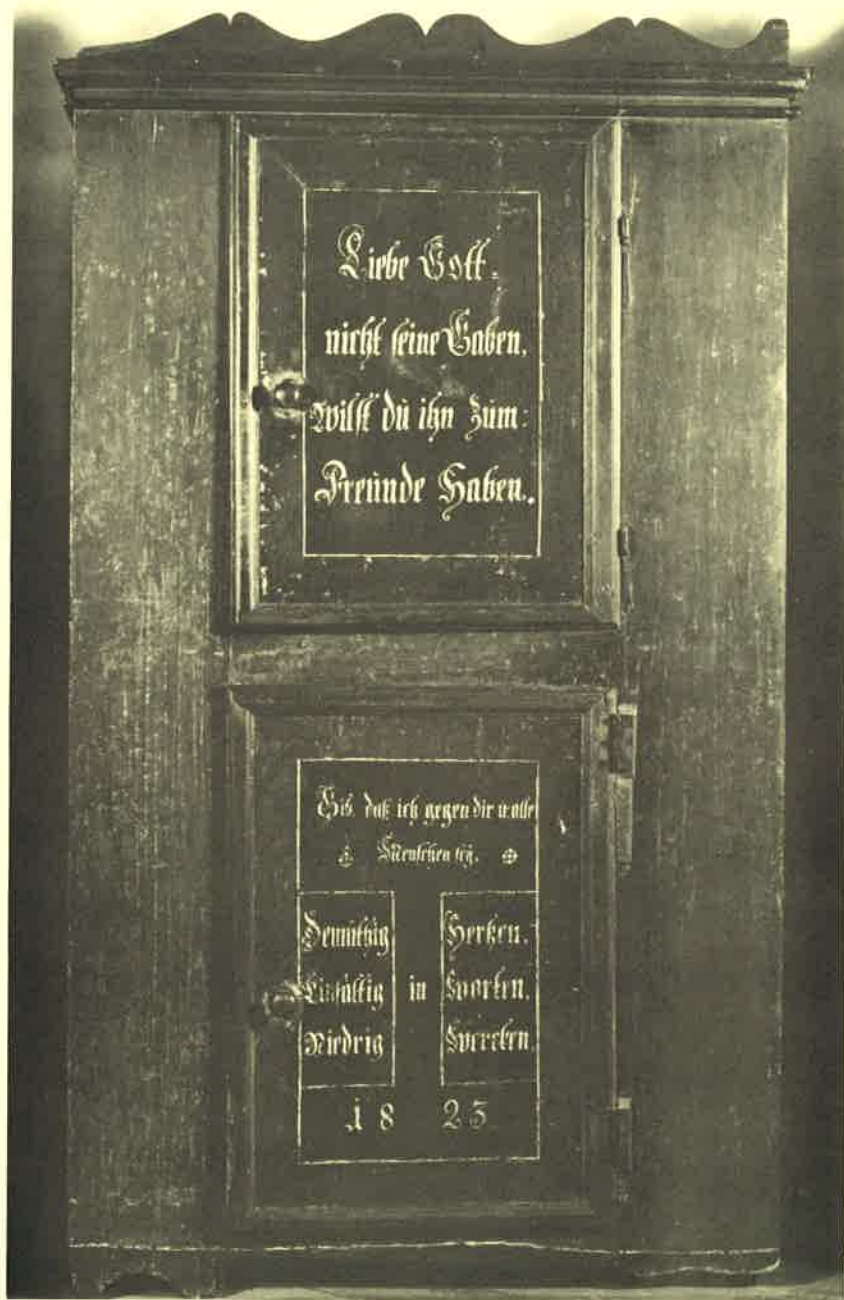 Liebe Gott:
nicht seine Gaben,
Wilst du ihn zum:
Freunde Haben.
Gib, daß ich gegen dir u alle
Menschen sey.
Demüthig Hertzen.
Einfältig in Worten.
Niedrig Wercken.
18 23